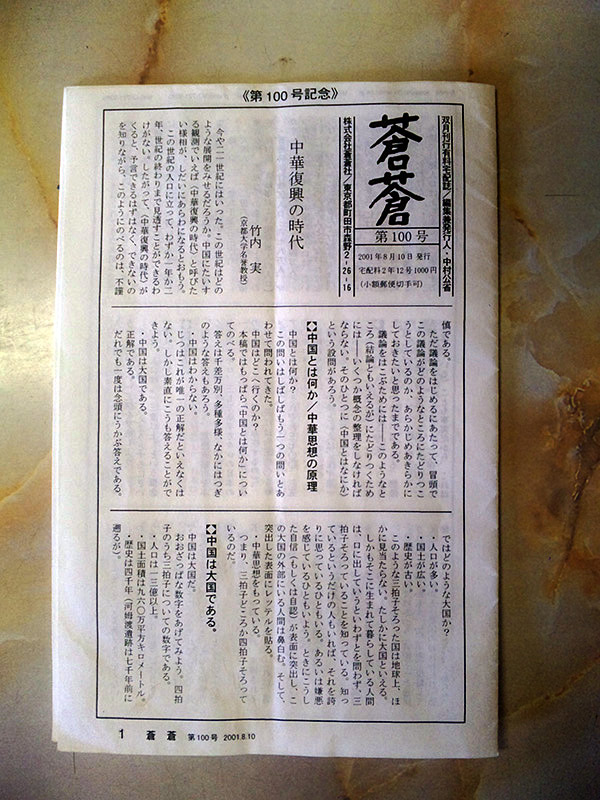 《第100号記念》
双月刊有料宅配誌/編集兼発行人・中村公省
蒼蒼
第100号
2001年8月10日 発行
宅配料2年12号1000円
(小額郵便切手可)
株式会社蒼蒼社/東京都町田市森野2-26-16
中華復興の時代
竹内 実
(京都大学名誉教授)
今や二一世紀にはいった。この世紀はどの
ような展開をみせるだろうか。中国にたいす
る観測でいえば〈中華復興の時代〉と呼びた
い様相が、しだいにあらわになるとおもう。
この世紀の入口に立って、わずか一年か二
年、世紀の終わりまで見透すことができるわ
けがない。したがって、〈中華復興の時代〉が
くると、予言できるはずはなく、できないの
を知りながら、このようにのべるのは、不謹
慎である。
ただ議論をはじめるにあたって、冒頭で
この議論がどのようなところにたどりつこ
うとしているのか、あらかじめあきらかに
しておきたいと思ったまでである。
議論をはこぶためには――このようなと
ころ(結論ともいえるが)にたどりつくため
には――いくつか概念の整理をしなければ
ならない。そのひとつに〈中国とはなにか〉
という設問があろう。
◆中国とは何か/中華思想の原理
中国とは何か?
この問いはしばしばもう一つの問いとあ
わせて問われてきた。
中国はどこへ行くのか?
本稿ではもっぱら「中国とは何か」につい
てのべる。
答えは千差万別、多種多様、なかにはつぎ
のような答えもあろう。
・中国はわからない。
じつはこれが唯一の正解だといえなくは
ない。しかし素直にこうも答えることがで
きよう。
・中国は大国である。
正解である。
だれでも一度は念頭にうかぶ答えである。
ではどのような大国か?
・人口が多い。
・国土が広い。
・歴史が古い。
このような三拍子そろった国は地球上、ほ
かに見当たらない。たしかに大国といえる。
しかもそこに生まれて暮らしている人間
は、口に出していうといわずとを問わず、三
拍子そろっていることを知っている。知っ
ているというだけの人もいれば、それを誇
りに思っているひともいる。あるいは嫌悪
を感じているひともいよう。ときにこうし
た自信(もしくは自認)が表面に突出し、こ
の大国の外部にいる人間は鼻白む。そして、
突出した表面にレッテルを貼る。
・中華思想をもっている。
つまり、三拍子どころか四拍子そろって
いるのだ。
◆中国は大国である。
中国は大国だ。
おおざっぱな数字をあげてみよう。四拍
子のうち三拍子についての数字である。
・人口は一三億以上。
・国土面積は九六〇万平方キロメートル。
・歴史は四千年(河姆渡遺跡は七千年前に
遡るが)。
1 蒼蒼 第100号 2001.8.10